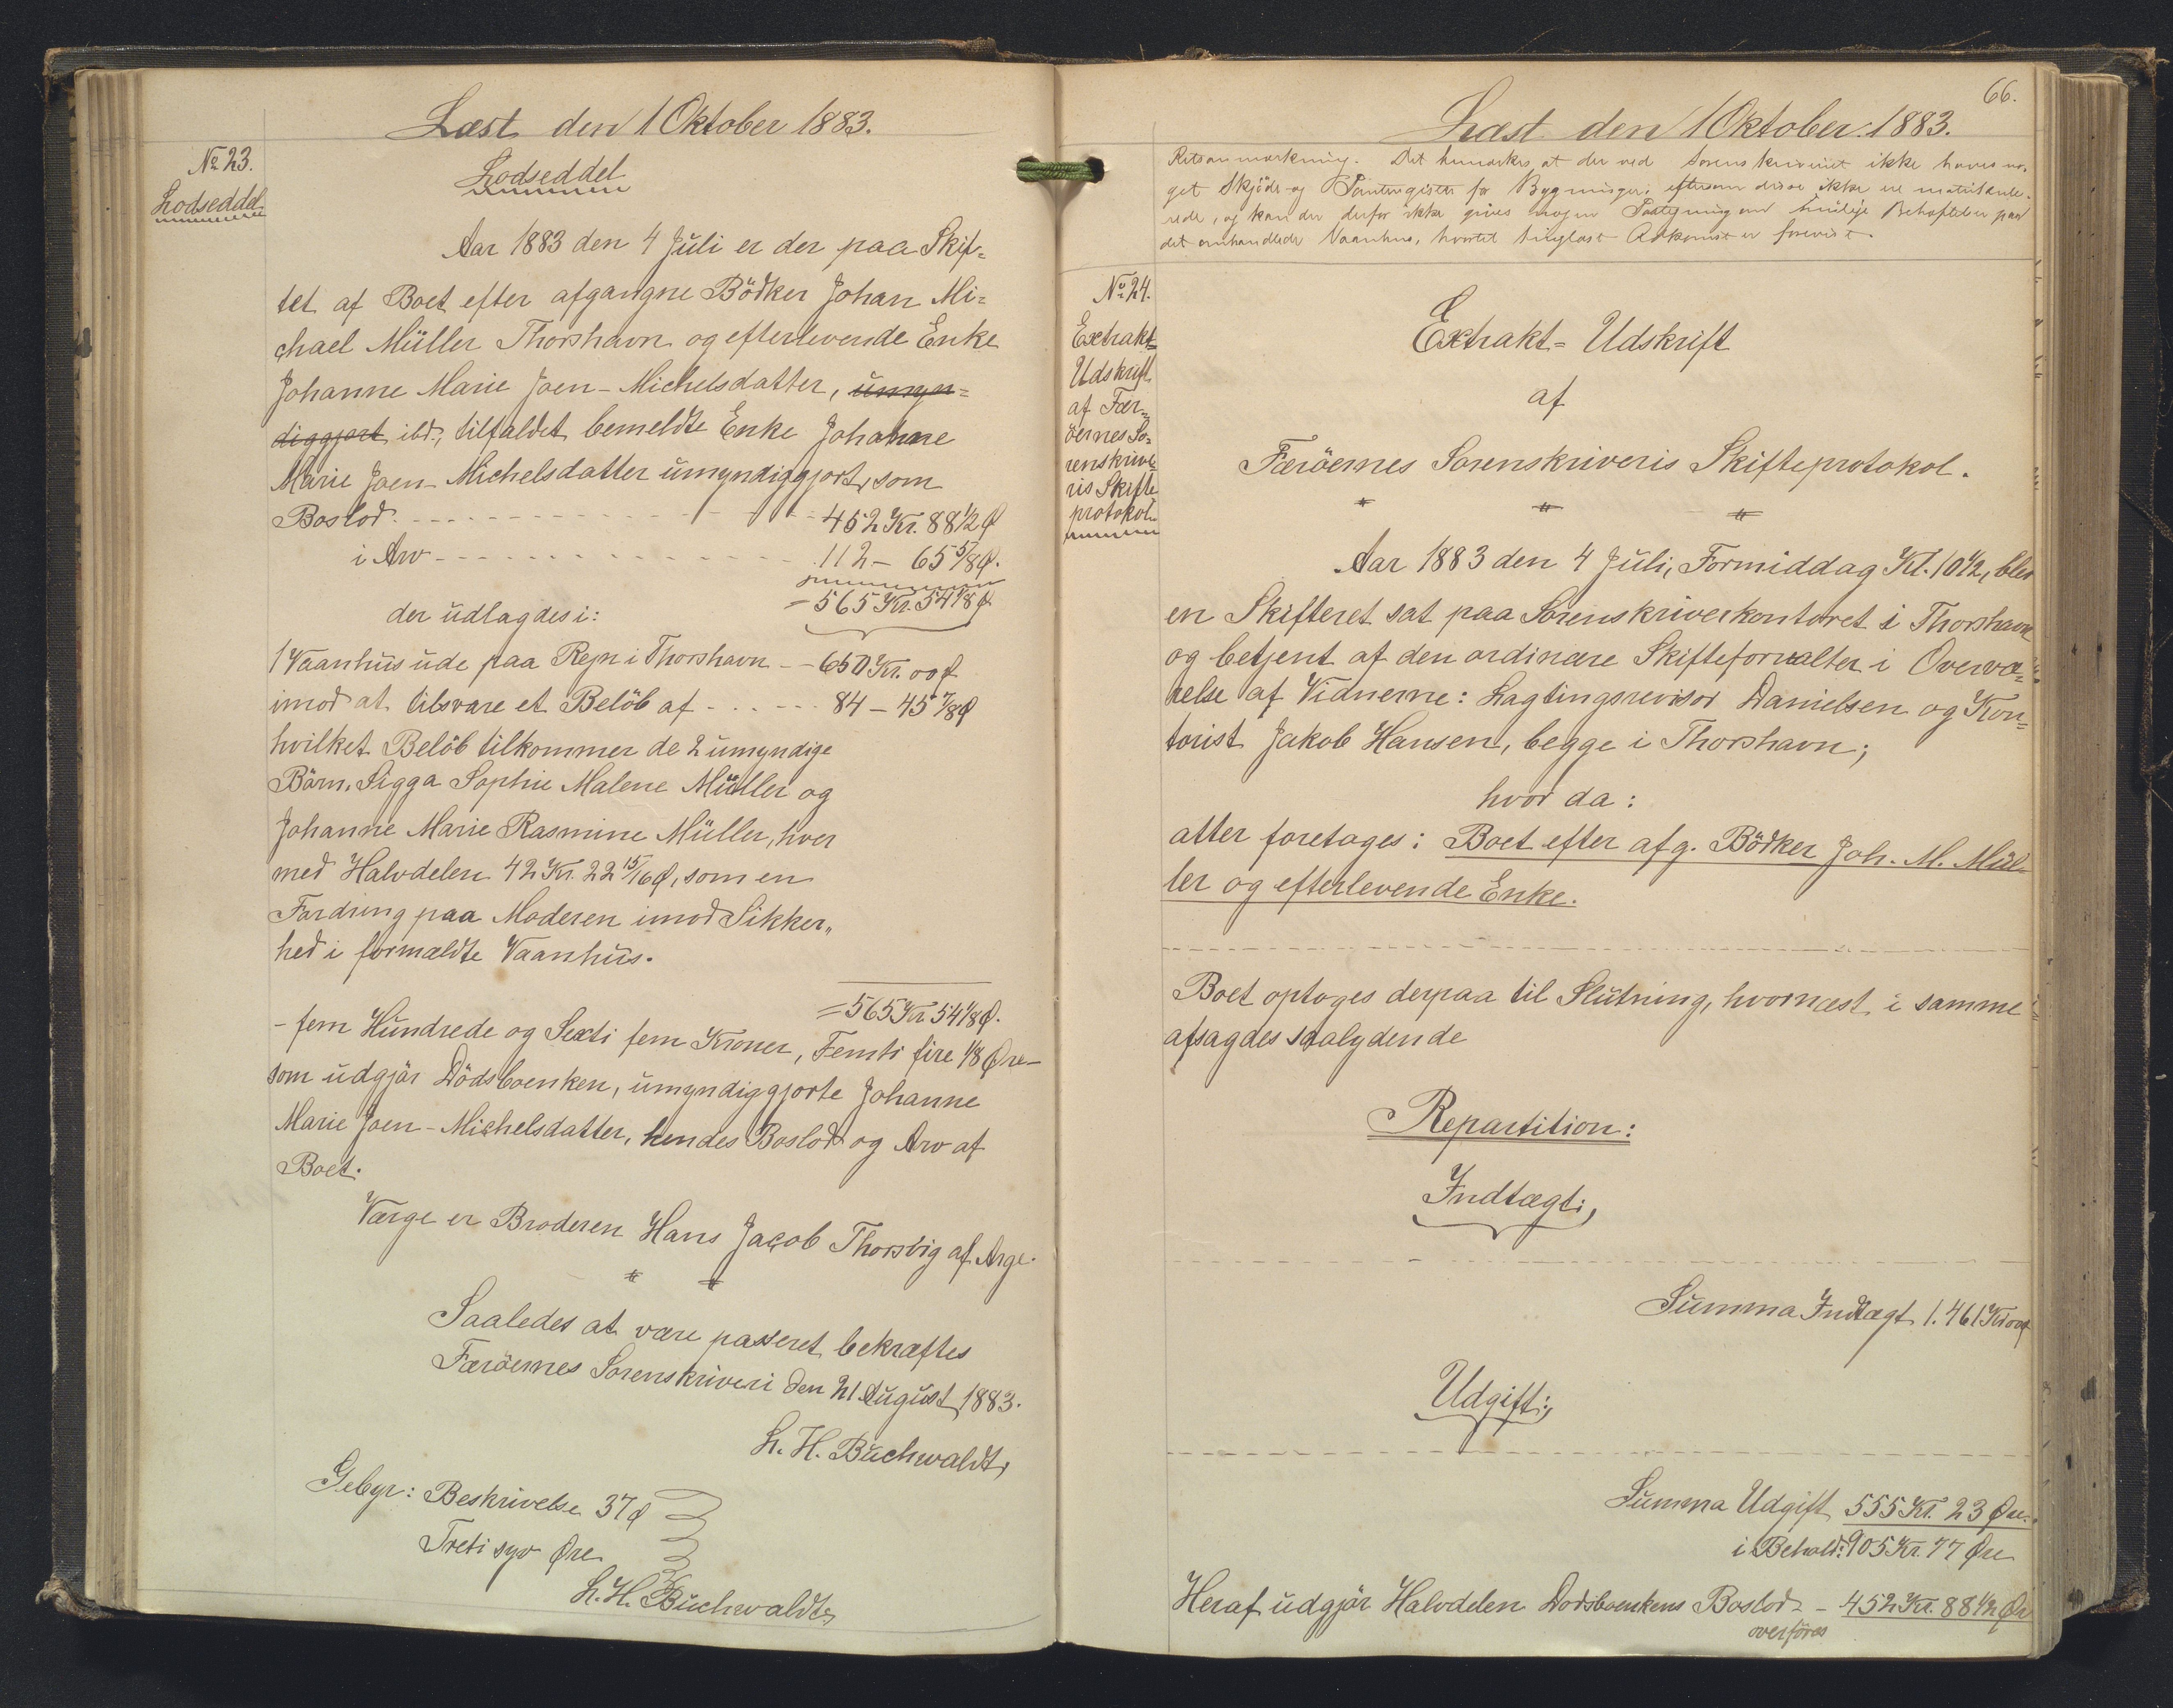 Læst den 1 Oktober 1883.
No 23.
Lodseddel
Lodseddel
Aar 1883 den 4 Juli er der paa Skif-
tet af Boet efter afgangne Bödker Johan Mi-
chael Müller Thorshavn og efterlevende Enke
Johanne Marie Joen-Michelsdatter, umyn-
diggjort ibd., tilfaldet bemeldte Enke Johanne
Marie Joen-Michelsdatter umyndiggjort, som
Boslod. 452 Kr. 88 1/2 Ø
i Arv 112 - 65 5/8 Ø.
= 565 Kr. 54 1/8 Ø
der udlagdes i:
1 Vaanhus ude paa Reyn i Thorshavn - 650 Kr. 00 Ø
imod at tilsvare et Belöb af 84 - 45 7/8 Ø
hvilket Belöb tilkommer de 2 umyndige
Börn, Sigga Sophie Malene Müller og
Johanne Marie Rasmine Müller, hver
med Halvdelen 42 Kr. 22 15/16 Ø, som en
Fordring paa Moderen imod Sikker-
hed i formældte Vaanhus.
= 565 Kr 54 1/8 Ø.
- fem Hundrede og Sexti fem Kroner, Femti fire 1/8 Øre -
som udgjör Dödsboenken, umyndiggjorte Johanne
Marie Joen-Michelsdatter, hendes Boslod og Arv af
Boet.
Værge er Broderen Hans Jacob Thorsvig af Arge.
Saaledes at være passeret bekræftes
Færöernes Sorenskriveri den 21 August 1883.
L. H. Buchwaldt,
Gebyr: Beskrivelse 37 Ø
Treti syv Øre
L. H. Buchwaldt,
66.
Læst den 1 Oktober 1883.
Retsanmærkning. Det bemærkes, at der ved Sorenskriveriet ikke haves no-
get Skjöde- og Panteregister for Bygninger, eftersom disse ikke ere matrikule-
rede, og kan der derfor ikke gives nogen Paategning om mulige Behæftelser paa
det omhandlede Vaanhus, hvortil tinglæst Adkomst er forevist.
No 24.
Extrakt-
Udskrift
af Fær-
öernes So-
renskrive-
ris Skifte
protokol
Extrakt-Udskrift
af
Færöernes Sorenskriveris Skifteprotokol.
Aar 1883 den 4 Juli, Formiddag Kl. 10 1/2, blev
en Skifteret sat paa Sorenskriverkontoret i Thorshavn
og betjent af den ordinære Skifteforvalter i Overvæ-
relse af Vidnerne: Lagtingsrevisor Danielsen og Kon-
torist Jakob Hansen, begge i Thorshavn;
hvor da:
atter foretoges: Boet efter afg. Bödker Joh. M. Mül-
ler og efterlevende Enke.
Boet optoges derpaa til Slutning, hvornæst i samme
afsagdes saalydende
Repartition:
Indtægt:,
Summa Indtægt 1.461 Kr 00 Ø
Udgift:,
Summa Udgift 555 Kr. 23 Øre.
i Behold: 905 Kr. 77 Øre
Heraf udgjör Halvdelen Dödsboenkens Boslod - 452 Kr. 88 1/2 Øre
overföres